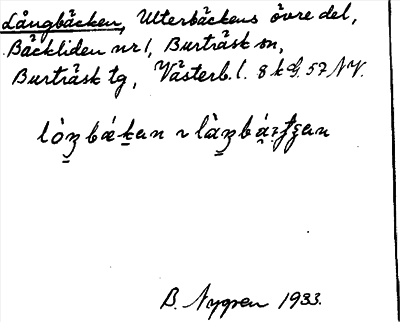 Långbäcken, Ulterbäckens övre del,
Bäckliden nr 1, Burträsk sn,
Burträsk tg, Västerb. l. 8 k G. 57 NV.
B. Nygren 1933.